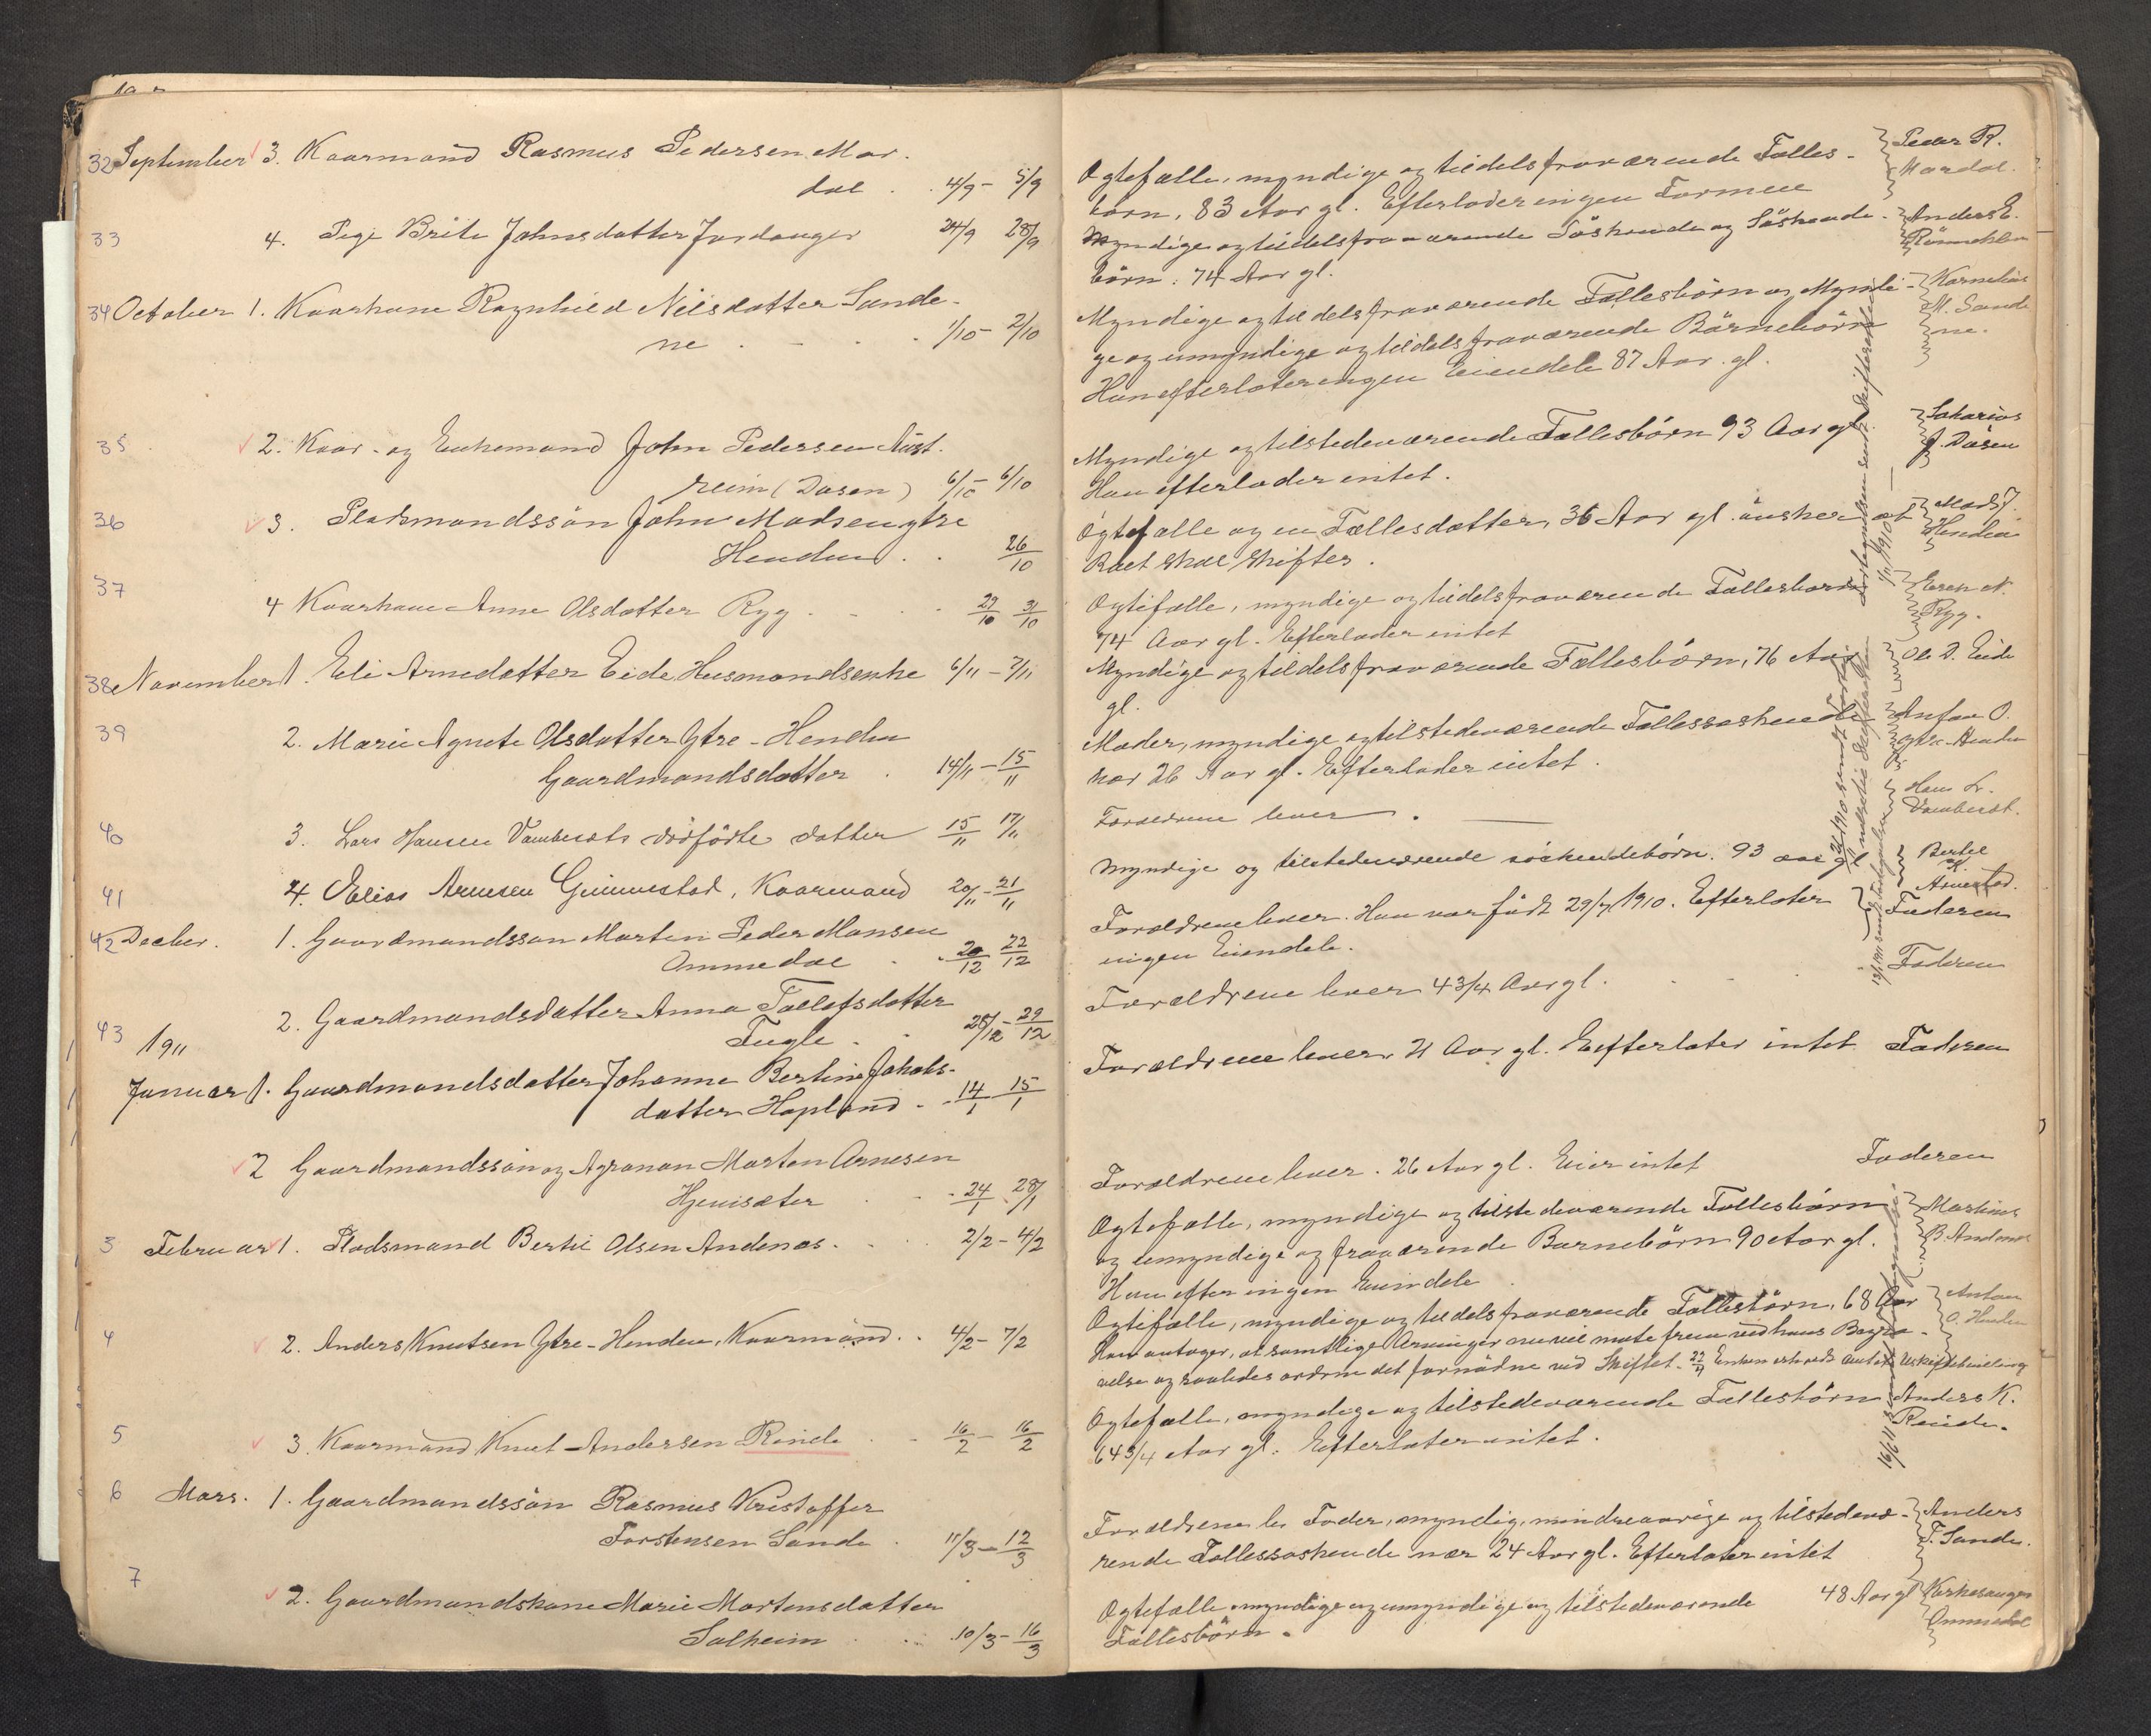 32 September 3. Kaarmand Rasmus Pedersen Mar-
dal . . 4/9 - 5/9
33 4. Pige Brite Johnsdatter Jordanger 24/9 28/9
34 October 1. Kaarkone Ragnhild Nilsdatter Sande-
ne . . . . 1/10 - 2/10
35 2. Kaar- og Enkemand John Pedersen Aust-
reim (Dasen) 6/10 - 6/10
36 3. Pladsmandssön John Madsen ytre
Henden . . 26/10
37 4 Kaarkone Anne Olsdatter Ryg - . . 29/10 31/10
38 November 1. Eli Arnedatter Eide Husmandsenke 6/11 - 7/11
39 2. Marie Agnete Olsdatter Ytre-Henden
Gaardmandsdatter . 14/11 - 15/11
40 3. Lars Hansen Vambesets dödfödte datter 15/11 17/11
41 4. Elias Arnesen Gimmestad, Kaarmand 20/11 - 21/11
42 Decber. 1. Gaardmandsson Marten Peder Monsen
Ommedal . . 20/12 22/12
43 2. Gaardmandsdatter Anna Tollefsdatter
Fugle . . 28/12 - 29/12
1911
Januar 1. Gaardmandsdatter Johanne Bertine Jakobs-
datter Hopland . . 14/1 15/1
2 Gaardmandssön og Agronom Marton Arnesen
Hjemsæter . . . 24/1 28/1
3 Februar 1. Pladsmand Bertil Olsen Andenæs . . . 2/2 - 4/2
4 2. Anders Knutsen Ytre-Henden, Kaarmand . . 4/2 - 7/2
5 3. Kaarmand Knut Andersen Reinde . . 16/2 - 16/2
6 Mars. 1. Gaardmandssön Rasmus Kristoffer
Torstensen Sande . 11/3 - 12/3
7 2. Gaardmandskone Marie Martensdatter
Solheim . . . 10/3 - 16/3
Ogtefælle, myndige og tildels fraværende Fælles-
börn, 83 Aar gl. Efterlader ingen Formue
Peder R.
Mardal.
Myndige og tildels fraværende Söskende og Söskende-
börn. 74 Aar gl.
Anders E.
Myndige og tildels fraværende Fællesbörn og Myndi-
ge og umyndige og tildels fraværende Börnebörn
Hun efterlater ingen Eiendele 87 Aar gl.
Kornelius
M. Sande
ne.
Myndige og tilstedeværende Fællesbörn 93 Aar gl.
Han efterlader intet.
Sakarias
J. Dasen
Ogtefælle og en Fællesdatter, 36 Aar gl. önsker at
Boet skal skiftes.
Mads J.
Henden
Ogtefælle, myndige og tildels fraværende Fællesbörn
74 Aar gl. Efterlader intet
N.
Ryg.
Myndige og tildels fraværende Fællesbörn, 76 Aar
gl.
Ole D. Eide
Moder, myndige og tilstedeværende Fællessöskende
nær 26 Aar gl. Efterlader intet.
Anton O.
ytre Henden
Forældrene lever .
Hans L.
Vambeset.
Myndige og tilstedeværende söskendebörn. 93 aar gl
Bertel
Forældrene lever. Han var födt 29/7 1910. Efterlater
ingen Eiendele.
Faderen
Forældrene lever 4 3/4 Aar gl.
Faderen
Forældrene lever 21 Aar gl. Eefterlater intet Faderen
Forældrene lever. 26 Aar gl. Eier intet Faderen
Ogtefælle, myndige og tilstedeværende Fællesbörn
og umyndige og fraværende Barnebörn 90 Aar gl.
Han efter ingen Eiendele
Martinus
B. Andenæs
Ogtefælle, myndige og tildels fraværende Fællesbörn, 68 Aar
Han antager, at samtlige Arvinger nu vil møte frem ved hans Begra-
velse og saaledes ordne det fornödne ved Skiftet. Enken
Anton
O. Henden
Ogtefælle, myndige og tilstedeværende Fællesbörn
64 3/4 Aar gl. Efterlater intet.
Anders K.
Reinde.
Forældrene lev Fader, myndig, mindreaarige og tilstedevæ-
rende Fællessöskende nær 24 Aar gl. Efterlater intet
Anders
T. Sande.
Ogtefælle myndige og umyndige og tilstedeværende 48 Aar gl
Fællesbörn.
Kirkesanger
Ommedal